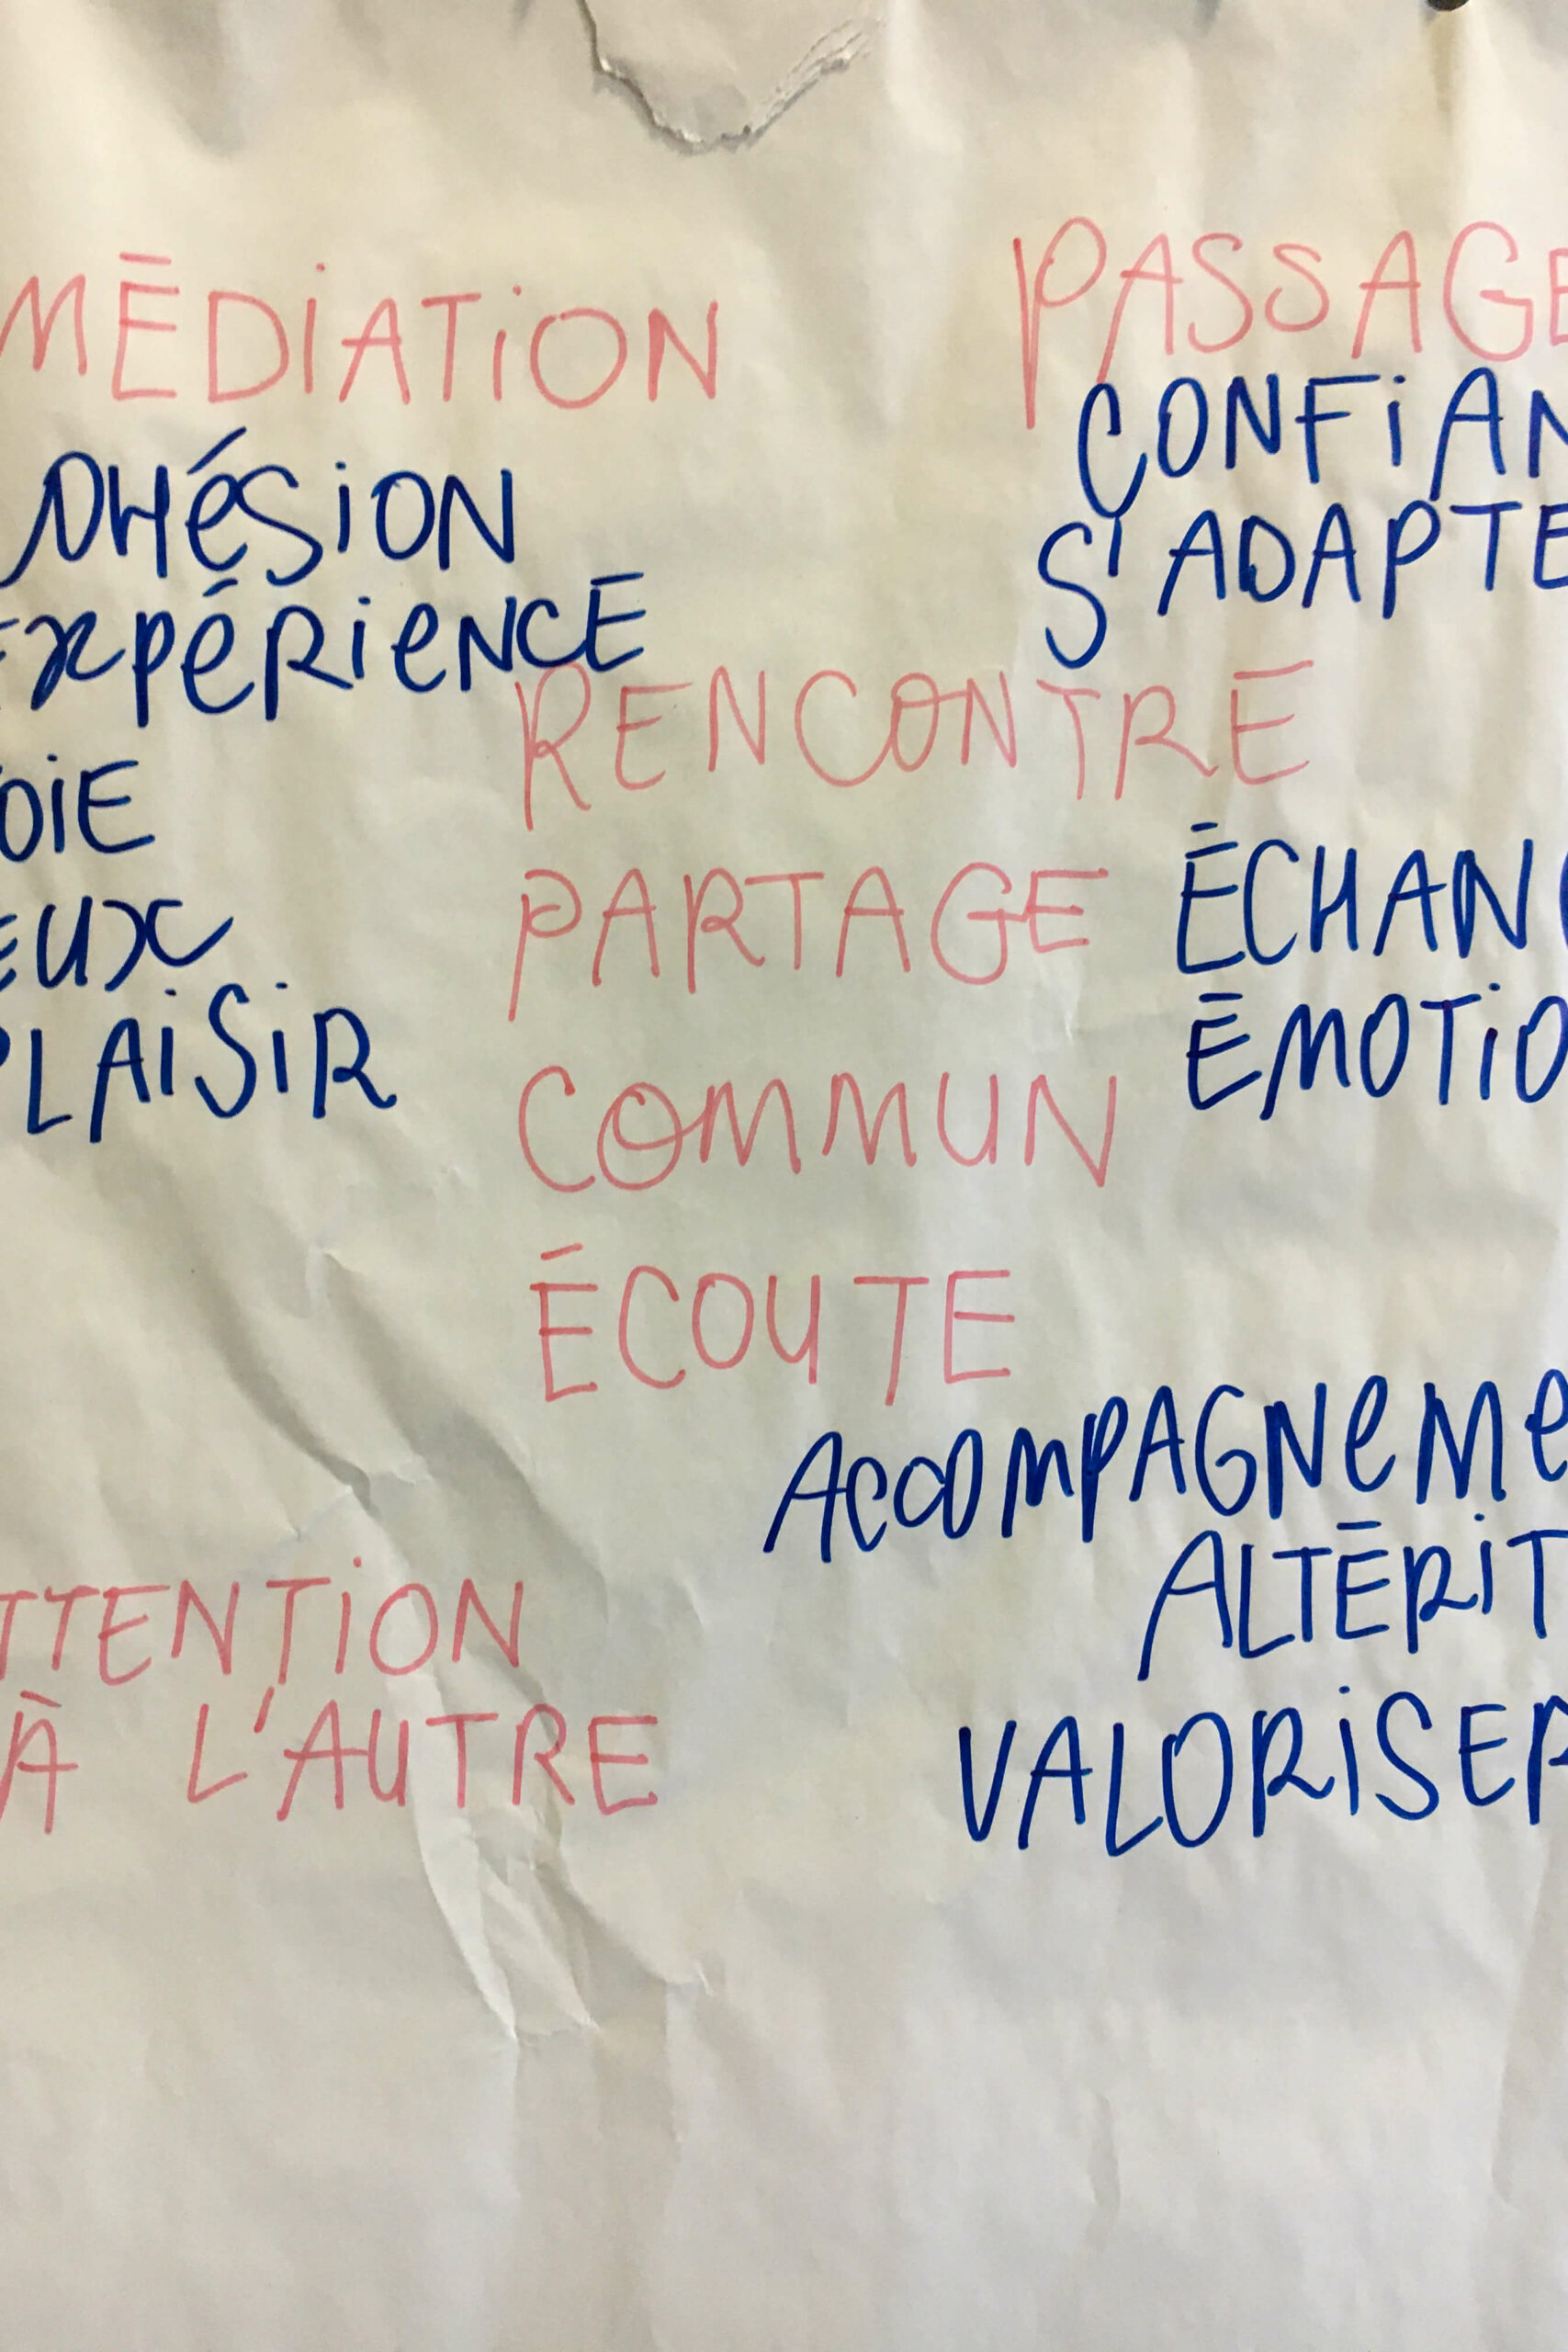 MÉDIATION
PASSAGE
CONFIAN
OHÉSION
S'ADAPTE
EXPÉRIENCE
RENCONTRE
OIE
EUX
PARTAGE
ÉCHAN
PLAISIR
ÉMOTIO
COMMUN
ÉCOUTE
ACCOMPAGNEME
ALTÉRIT
TTENTION
À L'AUTRE
VALORISER